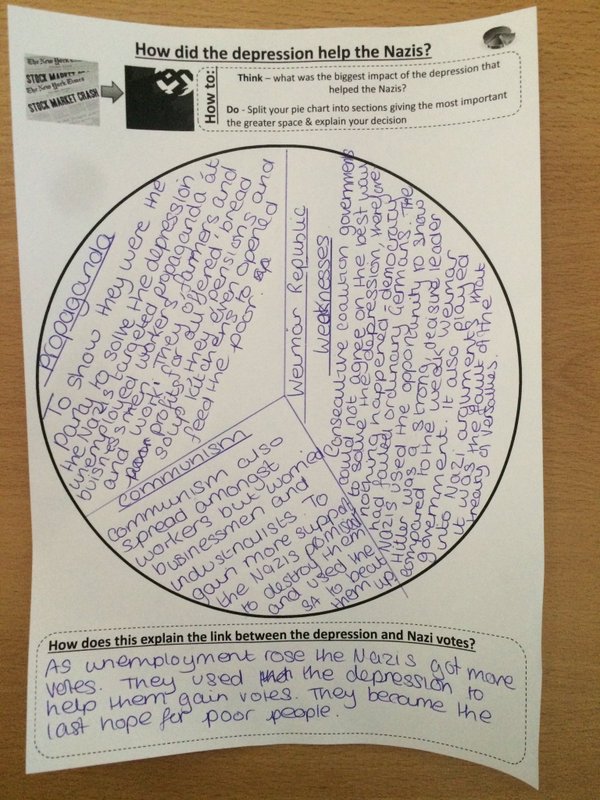 How did the depression help the Nazis?
The New York
STOCK MARKET
The New York Times
STOCK MARKET CRASH
How to:
Think – what was the biggest impact of the depression that
helped the Nazis?
Do - Split your pie chart into sections giving the most important
the greater space & explain your decision
Propaganda
To show they were the
party to solve the depression
the Nazis targeted propaganda at
unemployed workers, farmers and
buisnessmen. They offered 'bread
and work', they expensions and
profits for all
soup kitchens to
feed the poor.
even opened
Weimar Republic
Weaknesses
Consecutive coalition governments
could not agree on the best way
to solve the depression, therefore
nothing happened, democracy
had failed ordinary Germans. The
Nazis used the opportunity to show
Hitler was a strong, leader
compared to the weak Weimar
government. It also played
into Nazi arguments that
it was the fault of the
treaty of Versailles.
Communism
Communism also
spread amongst
workers but worried
businessmen and
industrialists. To
gain more support
the Nazis promised
to destroy them
and used the
SA to beat
them up.
How does this explain the link between the depression and Nazi votes?
As unemployment rose the Nazis got more
votes. They used the depression to
help them gain votes. They became the
last hope for poor people.